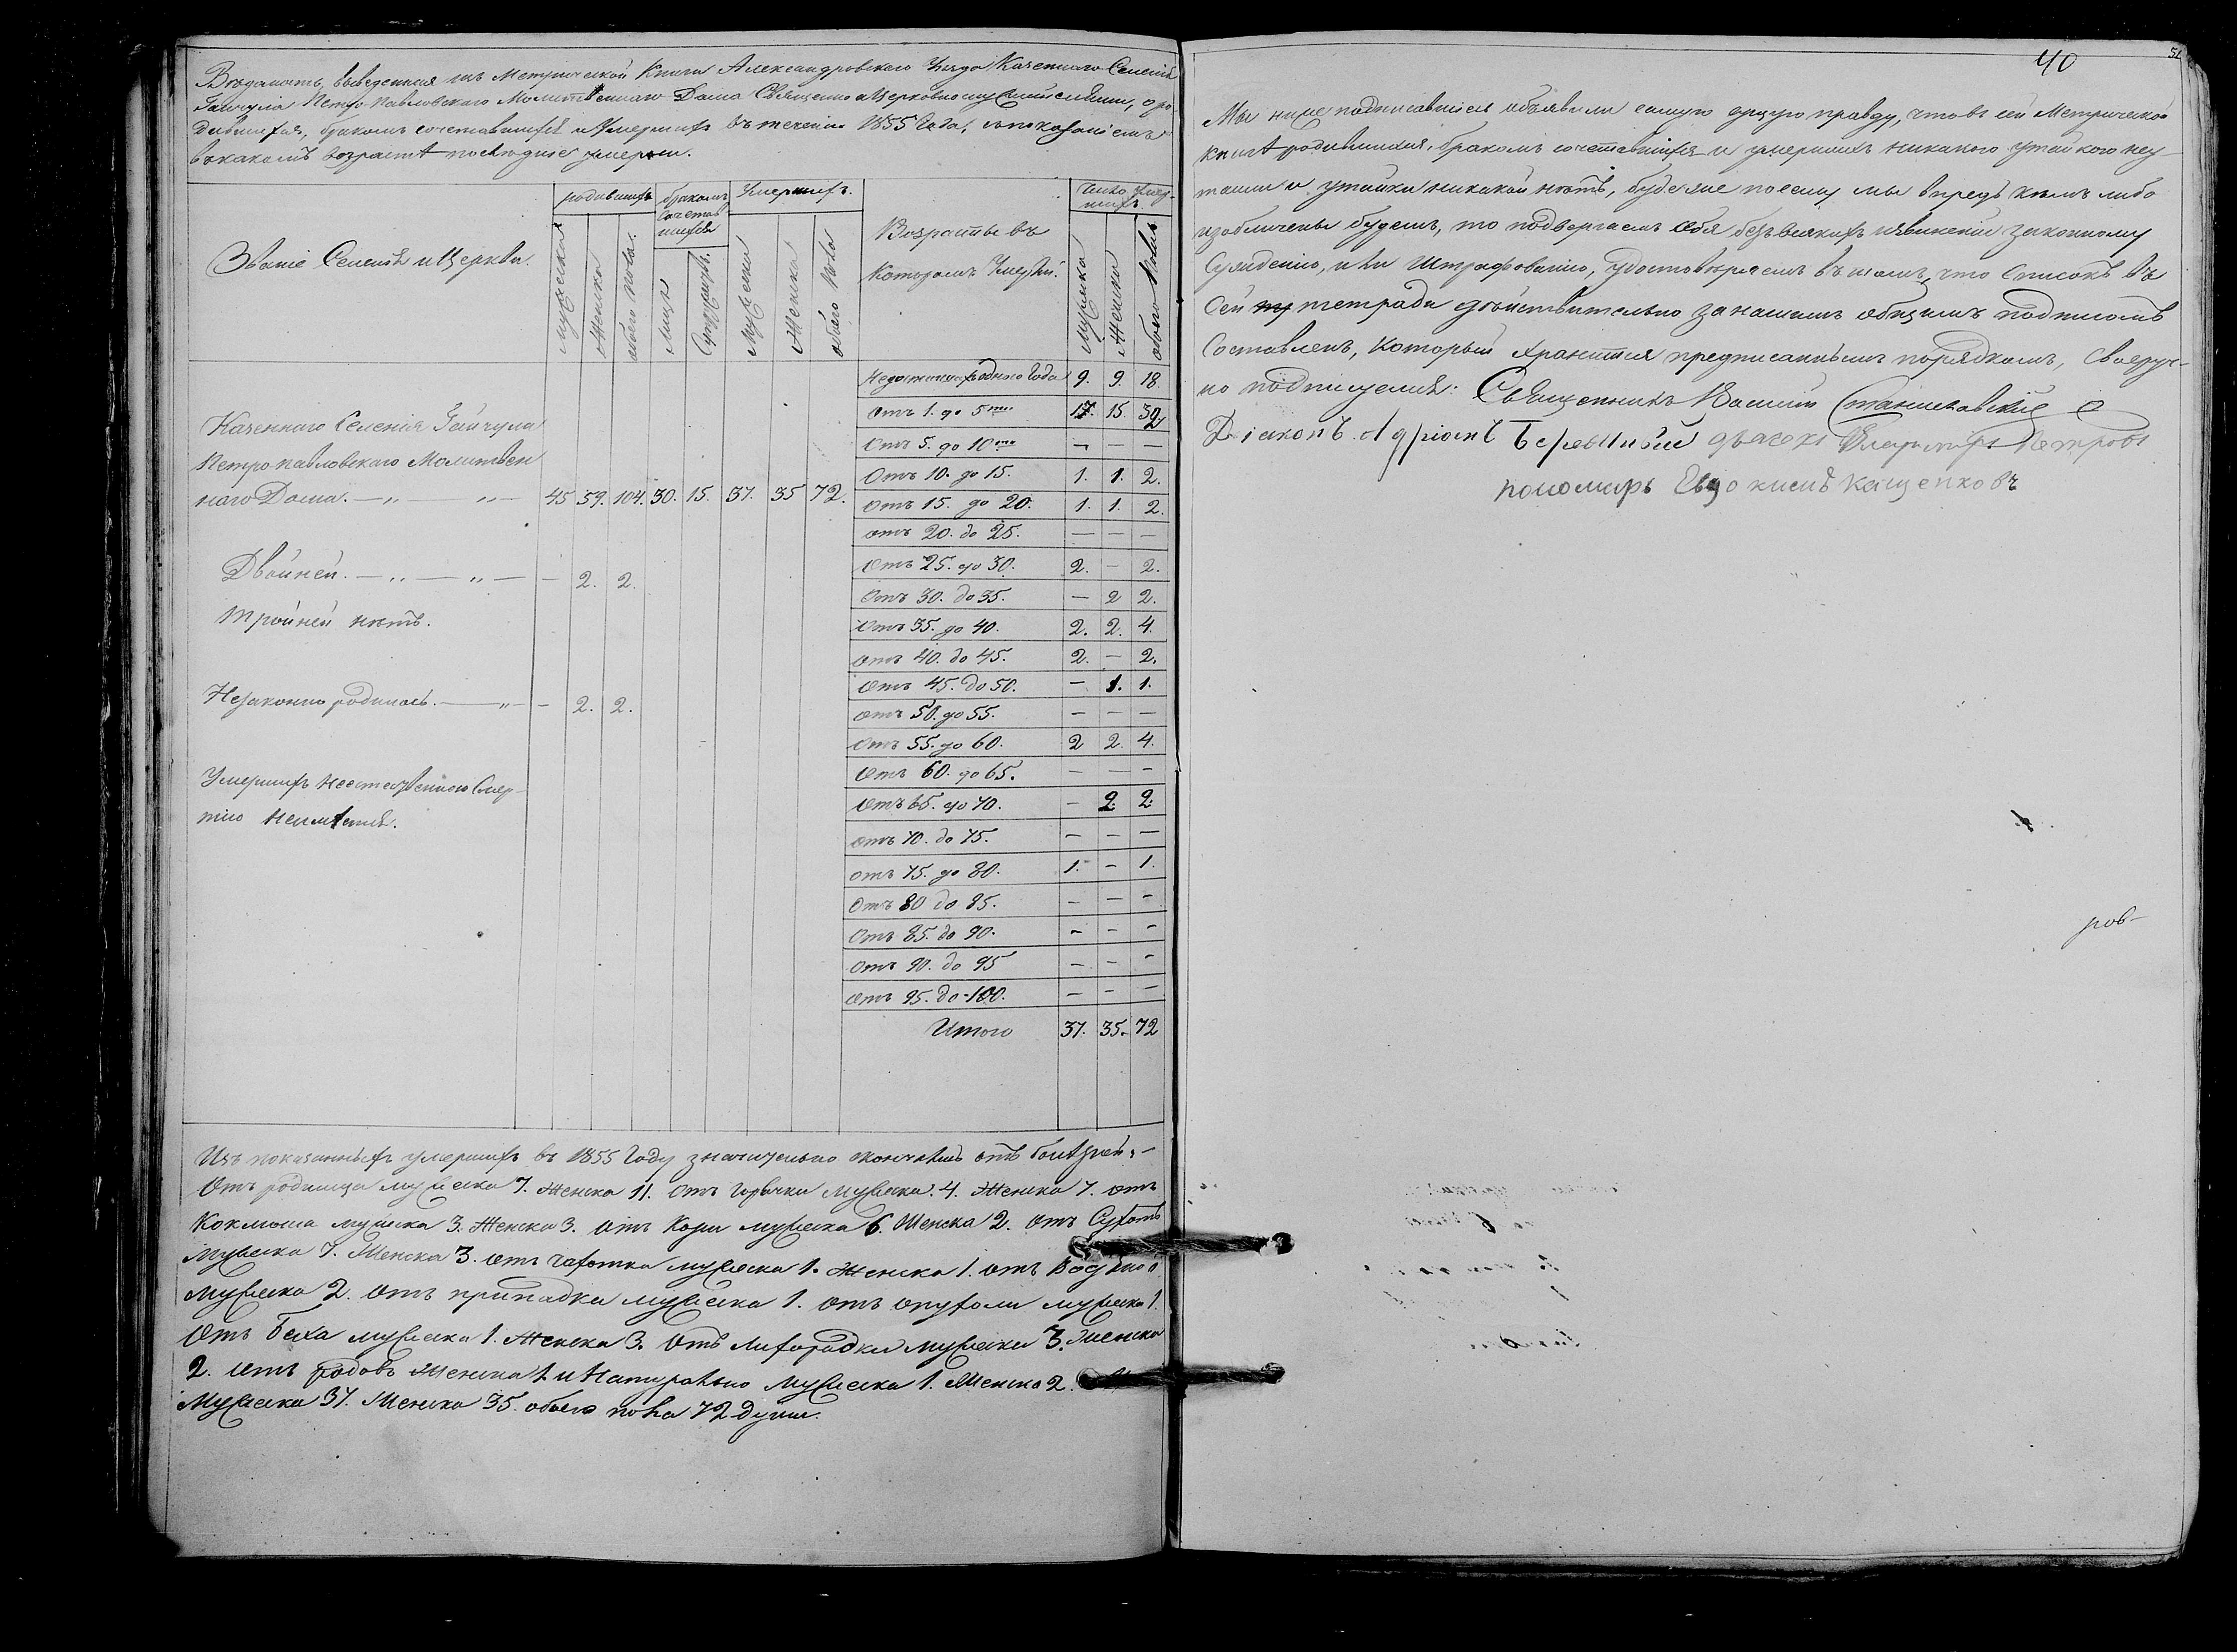 Вѣдомость, выведенная изъ Метрической Книги Александровскаго Уѣзда Казеннаго Селенія
Гайчула Петро-Павловскаго Молитвеннаго Дома Священно и Церковнослужителями, о ро-
дившихся, бракомъ сочетавшихся и Умершихъ въ теченіи 1855 Года, съ показаніемъ
въ какомъ возрастѣ послѣдніе умерли.
Званіе Селенія и Церкви.
родившихъ
бракомъ сочетав шихся
Умершихъ.
Возрасты въ
Которомъ Умерли.
число умер- шихъ
Мужеска
Женска
обоего пола.
Лицъ
Супружествъ.
Мужеска
Женска
обоего пола
Мужеска
Женска
обоего пола
Казеннаго Селенія Гайчула
Петропавловскаго Молитвен
наго Дома. — „ „ — 45 59. 104. 30. 15. 37. 35 72.
Двойней. — „ — „ — — 2. 2.
Тройней нѣтъ.
Незаконно родилось. — „ — — 2. 2.
Умершихъ неестественною Смер-
тію неимѣется.
Недостигшихъ одного Года 9. 9. 18.
Отъ 1. до 5ти 17. 15. 32
Отъ 5. до 10ти — — —
Отъ 10. до 15. 1. 1. 2.
Отъ 15. до 20. 1. 1. 2.
отъ 20. до 25. — — —
Отъ 25. до 30. 2. — 2.
Отъ 30. до 35. — 2 2.
Отъ 35. до 40. 2. 2. 4.
отъ 40. до 45. 2. — 2.
Отъ 45. до 50. — 1. 1.
отъ 50. до 55. — — —
Отъ 55. до 60. 2 2. 4.
Отъ 60. до 65. — — —
Отъ 65. до 70. — 2. 2.
отъ 70. до 75. — — —
отъ 75. до 80. 1. — 1.
Отъ 80 до 85. — — —
Отъ 85. до 90. — — —
Отъ 90. до 95 — — —
Отъ 95. до 100. — — —
Итого 37. 35. 72
Изъ показанныхъ умершихъ въ 1855 Году значительно скончались отъ болѣзней, —
Отъ родимца мужеска 7. Женска 11. Отъ горячки мужеска. 4. Женска 7. отъ
Коклюша мужеска 3. Женска 3. отъ Кори мужеска 6. Женска 2. отъ Сухотъ
мужеска 7. Женска 3. отъ чахотки мужеска 1. Женска 1. отъ Водяной
мужеска 2. отъ припадка мужеска 1. отъ опухоли мужеска 1.
Отъ Беха мужеска 1. Женска 3. Отъ Лихорадки мужеска 3. Женска
2. отъ родовъ Женска 1. и Натурально мужеска 1. Женска 2.
Мужеска 37. Женска 35. обоего пола 72 души.
40
51
Мы нижеподписавшіеся объявили самую сущую правду, что въ сей Метрической
Книгѣ родившихся, бракомъ сочетавшихся и умершихъ никакого утайкого неу-
таили и утайки никакой нѣтъ, буде же по сему мы впредь кѣмъ либо
изобличены будемъ, то подвергаемъ себя безъ всякихъ извиненій законному
Сужденію, или Штрафованію, удостовѣряемъ въ томъ, что Списокъ въ
Сей тетради дѣйствительно за нашимъ общимъ подписомъ
Составленъ, Который хранится предписаннымъ порядкомъ, Своеруч-
но подписуемся: Священникъ Василій Станиславскій
Діаконъ Адріанъ Бережный дьячекъ Владиміръ Петровъ
пономарь Евдокимъ Кащенковъ
ров-